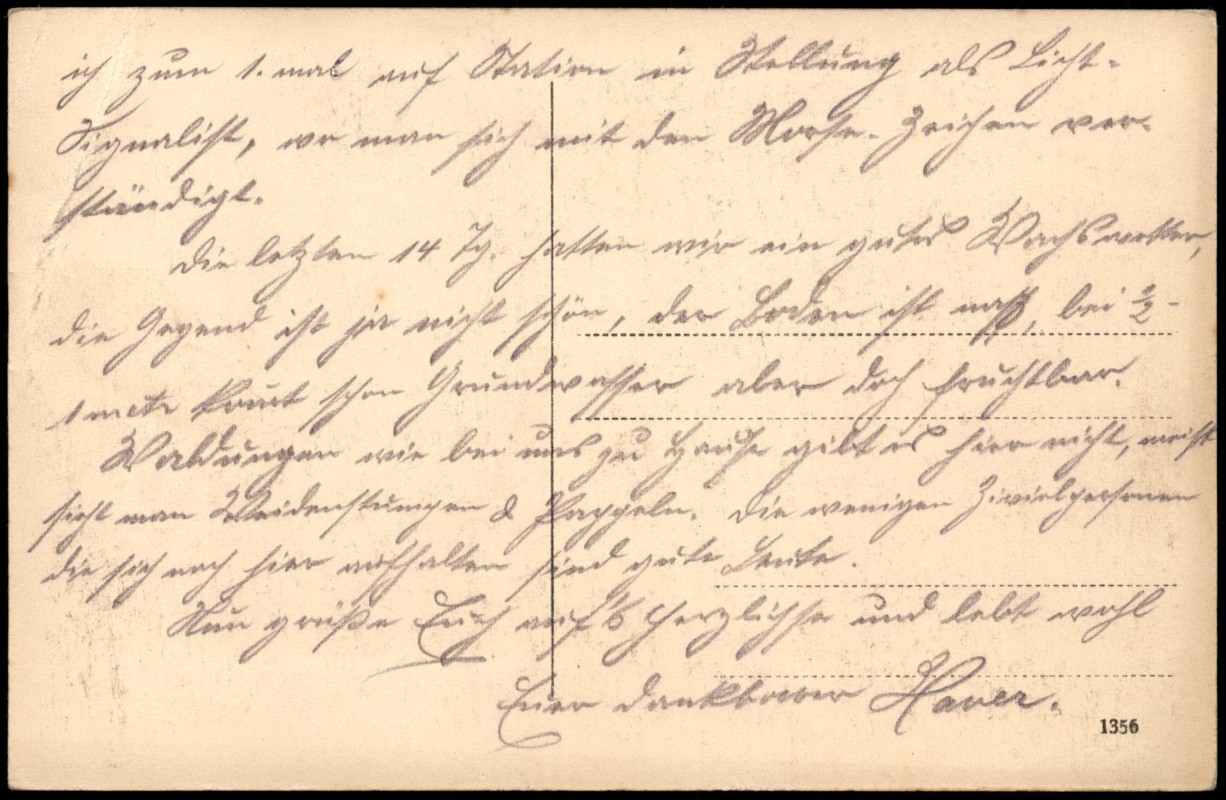 ich zum 1. mal auf Station in Stellung als Licht-
Signalist, wo man sich mit den Morse-Zeichen ver-
ständigt.
Die letzten 14 Tg. hatten wir ein gutes Wachswetter,
die Gegend ist ja nicht schön, der Boden ist naß, bei ½-
1 metr kommt schon Grundwasser aber doch fruchtbar.
Waldungen wie bei uns zu Hause gibt es hier nicht, meist
sieht man Weidenstumpen & Pappeln. Die wenigen Zivielpersonen
die sich noch hier aufhalten sind gute Leute.
Nun grüße Euch auf's herzlichste und lebt wohl
Euer dankbarer
1356